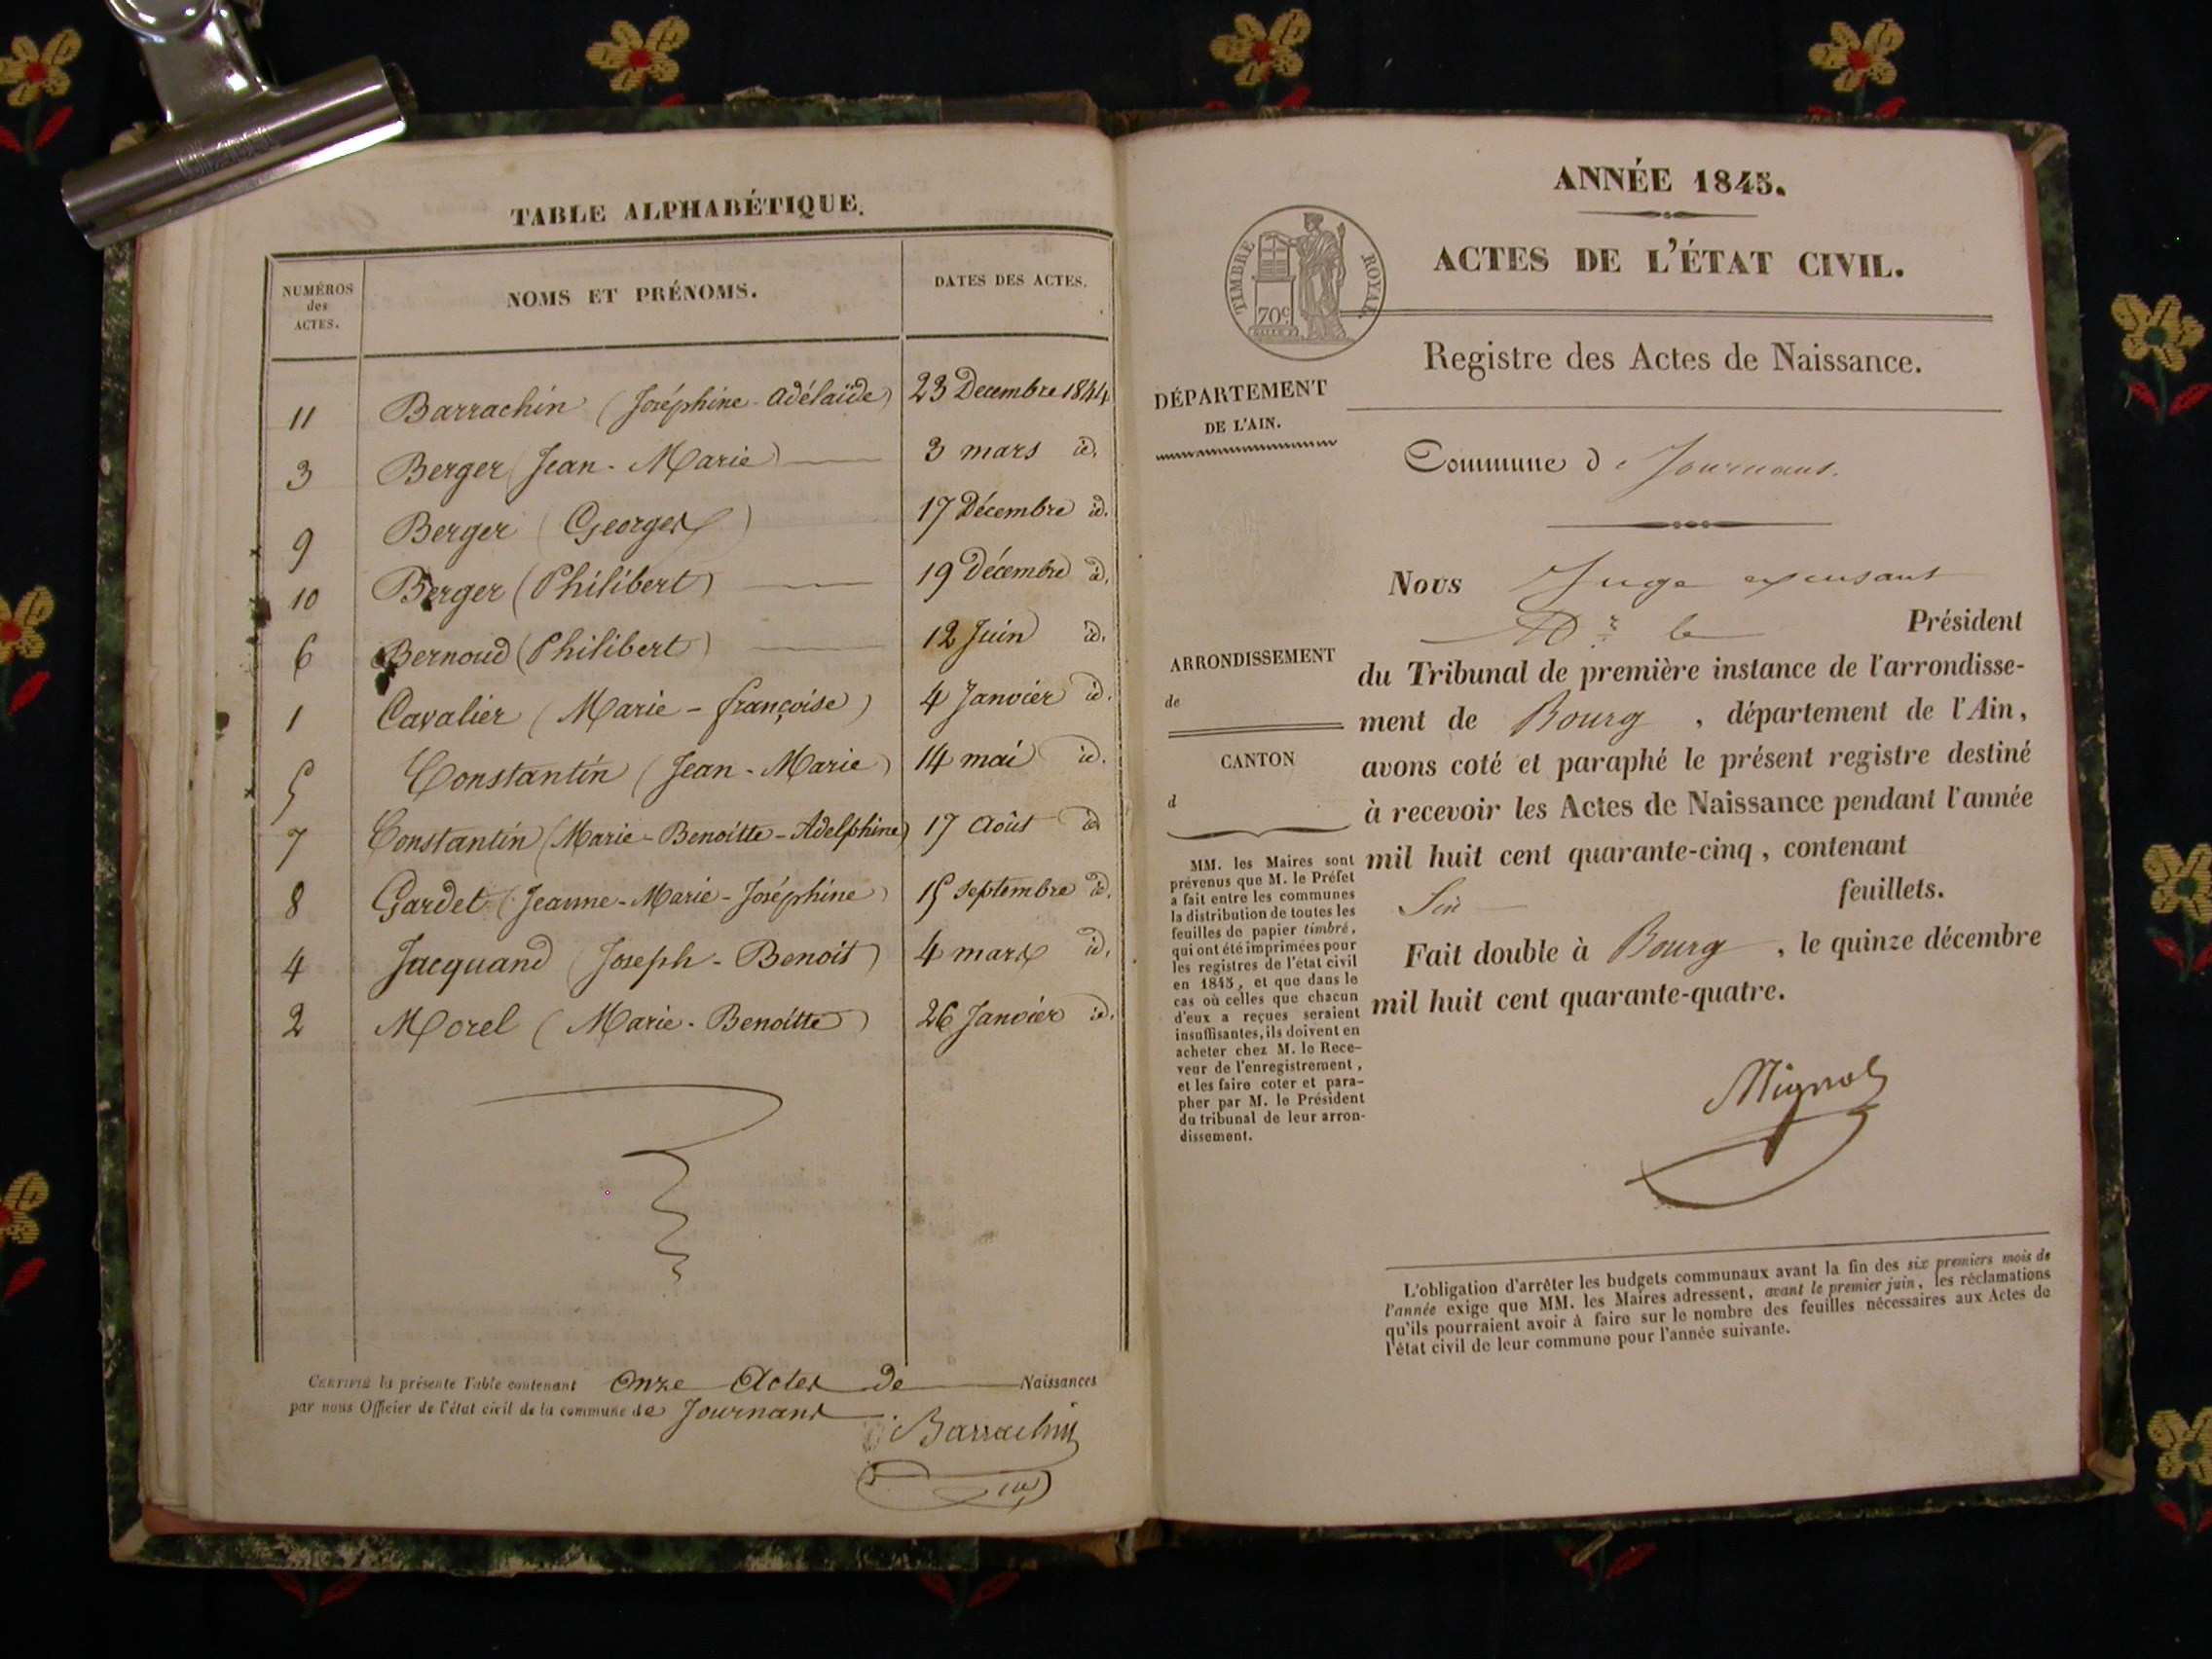 TABLE ALPHABÉTIQUE.
NUMÉROS
des
ACTES.
NOMS ET PRÉNOMS.
DATES DES ACTES.
11 Barrachin (Joséphine-Adélaïde) 23 Decembre 1844
3 Berger (Jean-Marie) 3 mars id.
9 Berger (Georges) 17 Décembre id.
10 Berger (Philibert) 19 Décembre id.
6 Bernoud (Philibert) 12 Juin id.
1 Cavalier (Marie-françoise) 4 Janvier id.
5 Constantin (Jean-Marie) 14 mai id.
7 Constantin (Marie-Benoitte-Adelphine) 17 Août id
8 Gardet (Jeanne-Marie-Joséphine) 15 septembre id.
4 Jacquand (Joseph-Benoit) 4 mars id.
2 Morel (Marie-Benoitte) 26 Janvier id.
CERTIFIÉ la présente Table contenant Onze Actes de Naissances
par nous Officier de l'état civil de la commune de Journans.
Barrachin
ANNÉE 1845.
ACTES DE L'ÉTAT CIVIL.
TIMBRE ROYAL
70c
Registre des Actes de Naissance.
DÉPARTEMENT
DE L'AIN.
Commune de Journans.
Nous Juge
le Président
ARRONDISSEMENT
de
CANTON
d
du Tribunal de première instance de l'arrondisse-
ment de Bourg, département de l'Ain,
avons coté et paraphé le présent registre destiné
à recevoir les Actes de Naissance pendant l'année
mil huit cent quarante-cinq, contenant
Six feuillets.
Fait double à Bourg, le quinze décembre
mil huit cent quarante-quatre.
MM. les Maires sont
prévenus que M. le Préfet
a fait entre les communes
la distribution de toutes les
feuilles de papier timbré,
qui ont été imprimées pour
les registres de l'état civil
en 1845, et que dans le
cas où celles que chacun
d'eux a reçues seraient
insuffisantes, ils doivent en
acheter chez M. le Rece-
veur de l'enregistrement,
et les faire coter et para-
pher par M. le Président
du tribunal de leur arron-
dissement.
L'obligation d'arrêter les budgets communaux avant la fin des six premiers mois de
l'année exige que MM. les Maires adressent, avant le premier juin, les réclamations
qu'ils pourraient avoir à faire sur le nombre des feuilles nécessaires aux Actes de
l'état civil de leur commune pour l'année suivante.